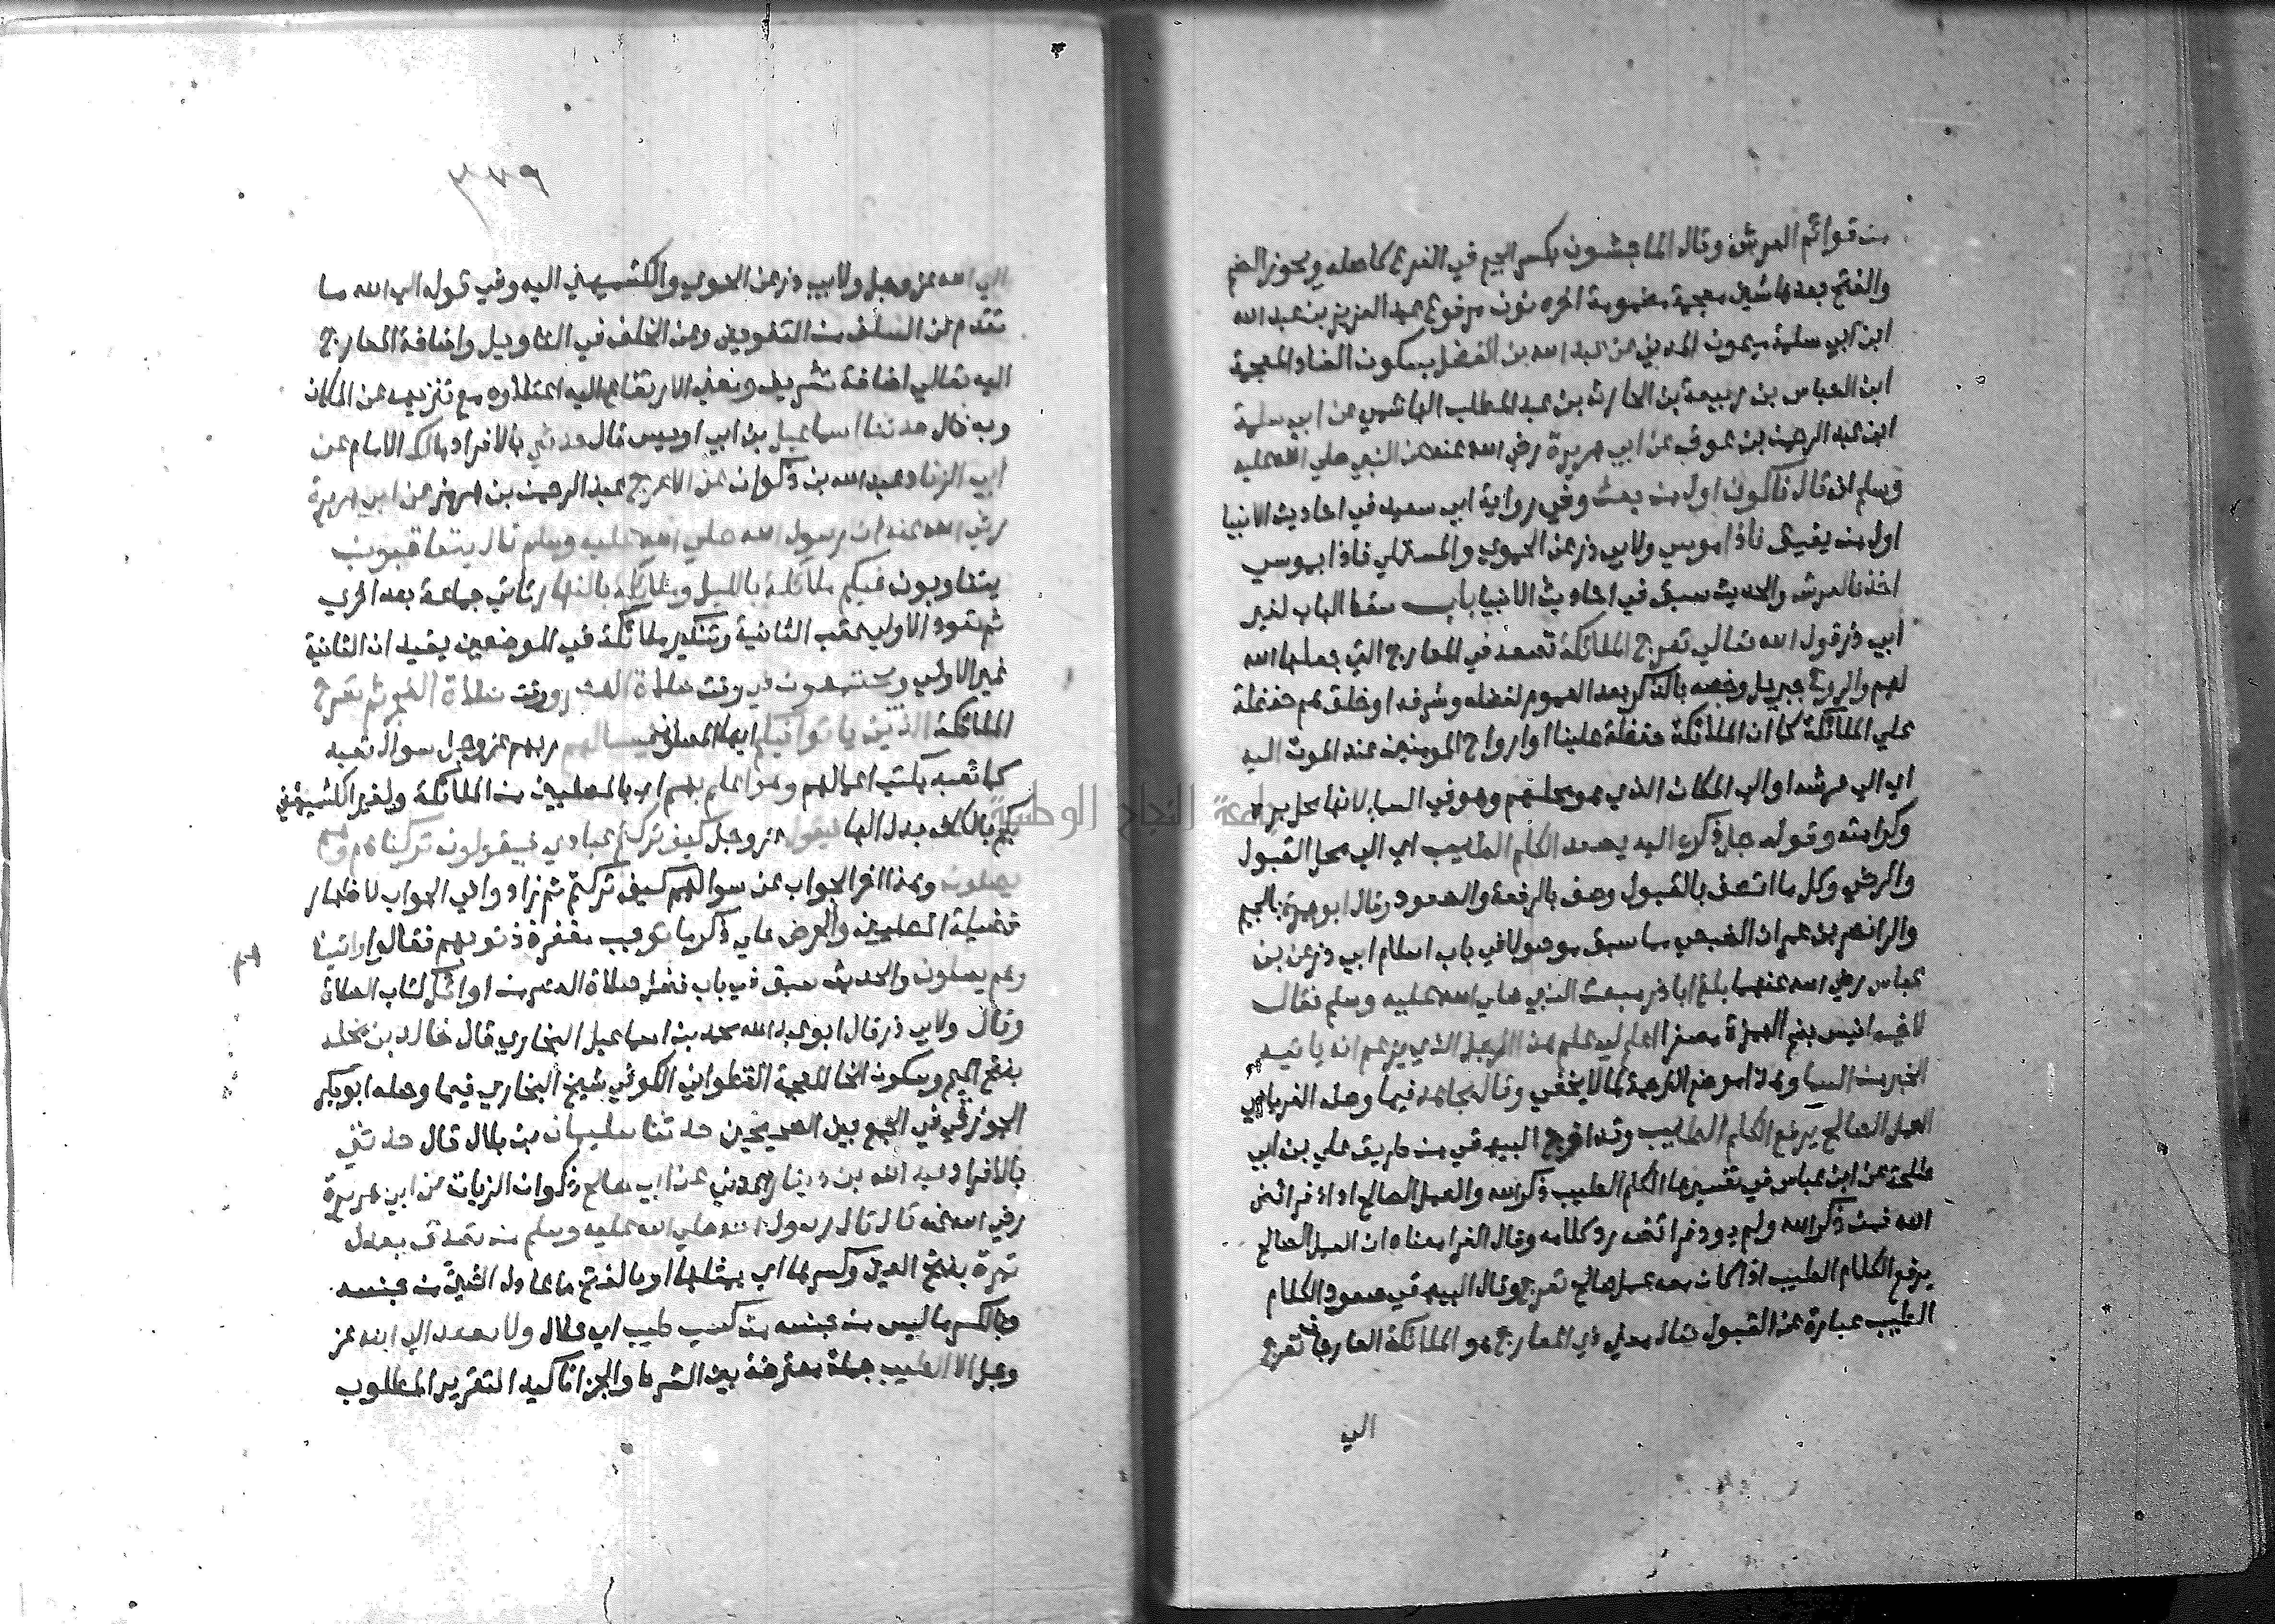 من قوائم العرش وقال الماجشون بكسر الجيم في الفرع كاصله ويجوز الضم
والفتح بعدها شين معجمة مضمومة اخره نون مرفوع عبد العزيز بن عبد الله
ابن ابي سلمة ميمون المدني عن عبد الله بن الفضل بسكون الضاد المعجمة
ابن العباس بن ربيعة بن الحارث بن عبد المطلب الهاشمي عن ابي سلمة
ابن عبد الرحمن بن عوف عن ابي هريرة رضي الله عنه عن النبي صلي الله عليه
وسلم انه قال فاكون اول من بعث وفي رواية ابي سعيد في احاديث الانبيا
اول من يفيق فاذا موسي ولابي ذر عن الحموي والمستملي فاذا بموسي
اخذ بالعرش والحديث سبق في احاديث الانبيا باب سقط الباب لغير
ابي ذر قول الله تعالي تعرج الملائكة تصعد في المعارج التي جعلها الله
لهم والروح جبريل وخصه بالذكر بعد العموم لفضله وشرفه او خلق هم حفظة
علي الملائكة كما ان الملائكة حفظة علينا او ارواح المومنين عند الموت اليه
اي الي عرشه او الي المكان الذي هو محلهم وهو في السما لانها محل بره
وكرامته وقوله جل ذكره اليه يصعد الكلم الطيب اي الي محل القبول
والرضي وكل ما اتصف بالقبول وصف بالرفعة والصعود وقال ابو جمرة بالجيم
والرا نصر بن عمران الضبعي مما سبق موصولا في باب اسلام ابي ذر عن بن
عباس رضي الله عنهما بلغ ابا ذر مبعث النبي صلي الله عليه وسلم فقال
لاخيه انيس بضم الهمزة مصغرا اعلم لي علم هذا الرجل الذي يزعم انه ياتيه
الخبر من السما وهذا موضع الترجمة كما لا يخفي وقال مجاهد فيما وصله الفريابي
العمل الصالح يرفع الكلم الطيب وقد اخرج البيهقي من طريق علي بن ابي
طلحة عن ابن عباس في تفسيرها الكلم الطيب ذكر الله والعمل الصالح اداء فرائض
الله فمن ذكر الله ولم يود فرائضه رد كلامه وقال الفرا معناه ان العمل الصالح
يرفع الكلام الطيب اذا كان معه عمل صالح تعرج وقال البيهقي صعود الكلام
الطيب عبارة عن القبول يقال معني ذي المعارج هو الملائكة العارجات تعرج
الي
٣٧٩
الي الله عز وجل ولابي ذر عن الحموي والكشميهني اليه وفي قوله الي الله ما
تقدم عن السلف من التفويض وعن الخلف في التاويل واضافة المعارج
اليه تعالي اضافة تشريف ومعني الارتفاع اليه اعتلاوه مع تنزيهه عن المكان
وبه قال حدثنا اسماعيل بن ابي اويس قال حدثني بالافراد مالك الامام عن
ابي الزناد عبد الله بن ذكوان عن الاعرج عبد الرحمن بن هرمز عن ابي هريرة
رضي الله عنه ان رسول الله صلي الله عليه وسلم قال يتعاقبون
يتناوبون فيكم ملائكة بالليل وملائكة بالنهار تاتي جماعة بعد اخري
ثم تعود الاولي عقب الثانية وتنكير ملائكة في الموضعين يفيد ان الثانية
غير الاولي ويجتمعون في وقت صلاة العصر ووقت صلاة الفجر ثم تعرج
الملائكة الذين باتوا فيكم ايها المصلون فيسالهم ربهم عز وجل سوال تعبد
كما تعبد بكتب اعمالهم وهو اعلم بهم اي بالمصلين من الملائكة ولغير الكشميهني
بكم بالكاف بدل الها فيقول عز وجل كيف تركتم عبادي فيقولون تركناهم وهم
يصلون وهذا اخر الجواب عن سوالهم كيف تركتم ثم زادوا في الجواب لاظهار
فضيلة المصلين والحرص علي ذكر ما يوجب مغفرة ذنوبهم فقالوا واتيناهم
وهم يصلون والحديث سبق في باب فضل صلاة العصر من اوائل كتاب الصلاة
وقال ولابي ذر قال ابو عبد الله محمد بن اسماعيل البخاري قال خالد بن مخلد
بفتح الميم وسكون الخا المعجمة القطواني الكوفي شيخ البخاري فيما وصله ابو بكر
الجوزقي في الجمع بين الصحيحين حدثنا سليمان بن بلال قال حدثني
بالافراد عبد الله بن دينار المدني عن ابي صالح ذكوان الزيات عن ابي هريرة
رضي الله عنه قال قال رسول الله صلي الله عليه وسلم من تصدق بعدل
تمرة بفتح العين وكسرها اي بمثلها او بالفتح ما عادل الشي من جنسه
وبالكسر ما ليس من جنسه من كسب طيب اي حلال ولا يصعد الي الله عز
وجل الا الطيب جملة معترضة بين الشرط والجزا تاكيد التقرير المطلوب
جامعة النجاح الوطنية